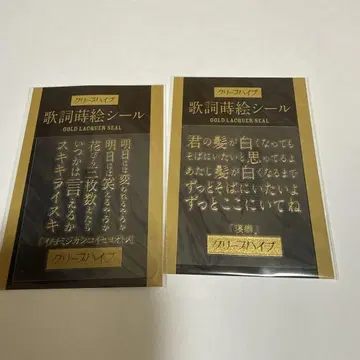 クリープハイプ
歌詞蒔絵シール
GOLD LACQUER SEAL
明日には変われるやろか
明日には笑えるやろか
花びら三枚数えたら
いつかは言えるか
スキキライスキ
『イノチミジカシコイセヨオトメ』
クリープハイプ
クリープハイプ
歌詞蒔絵シール
GOLD LACQUER SEAL
君の髪が白くなっても
そばにいたいと思ってるよ
あたし髪が白くなるまで
ずっとそばにいたいよ
ずっとここにいてね
クリープハイプ